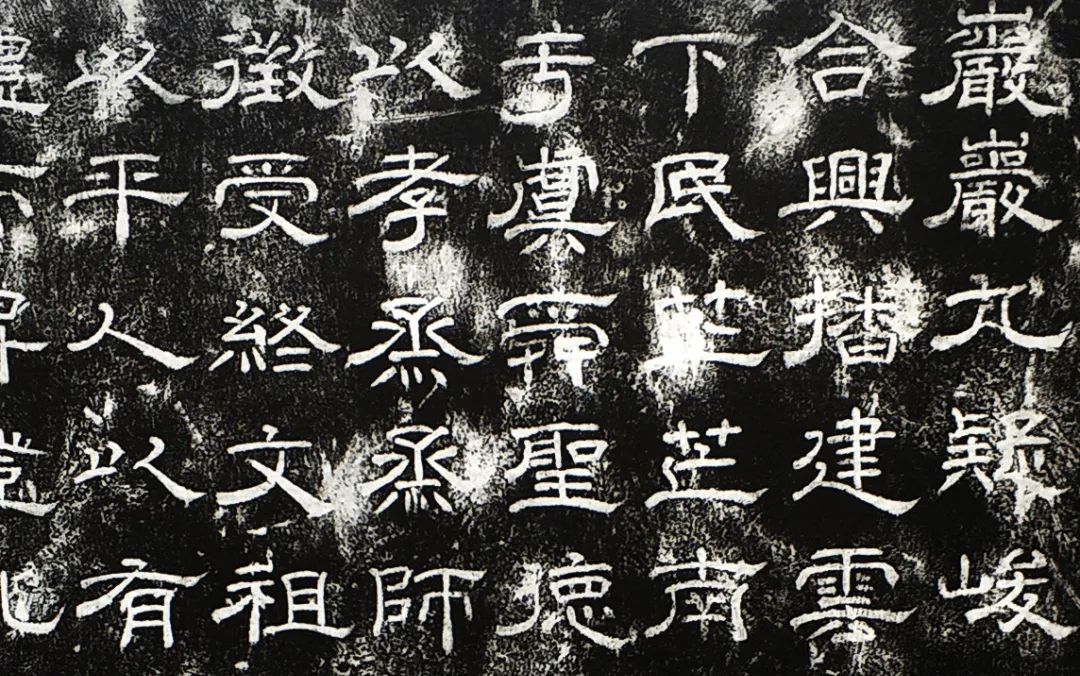 巖巖九疑峻
合興播建雲
下民芒芒南
于虞舜聖德
以孝烝烝師
徵受終文祖
以平人以有